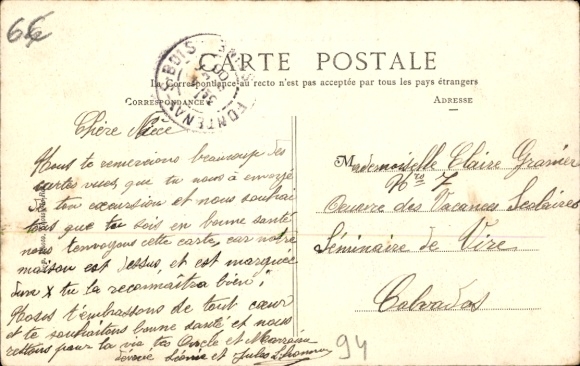 6€
CARTE POSTALE
La Correspondance au recto n'est pas acceptée par tous les pays étrangers
CORRESPONDANCE
ADRESSE
FONTENAY-S-BOIS
Chère Nièce
Nous te remercions beaucoup des
cartes vues, que tu nous à envoyé
de ton excursion et nous souhai
tons que tu sois en bonne santé
nous t'envoyons cette carte, car notre
maison est dessus, et est marquée
d'un X tu la reconnaîtra bien,
Nous t'embrassons de tout cœur
et te souhaitons bonne santé et nous
restons pour la vie tes Oncle et Marraine
Léonie et Jules
Mademoiselle Claire Granier
N° 7
Oeuvre des Vacances Scolaires
Séminaire de Vire
Calvados
94